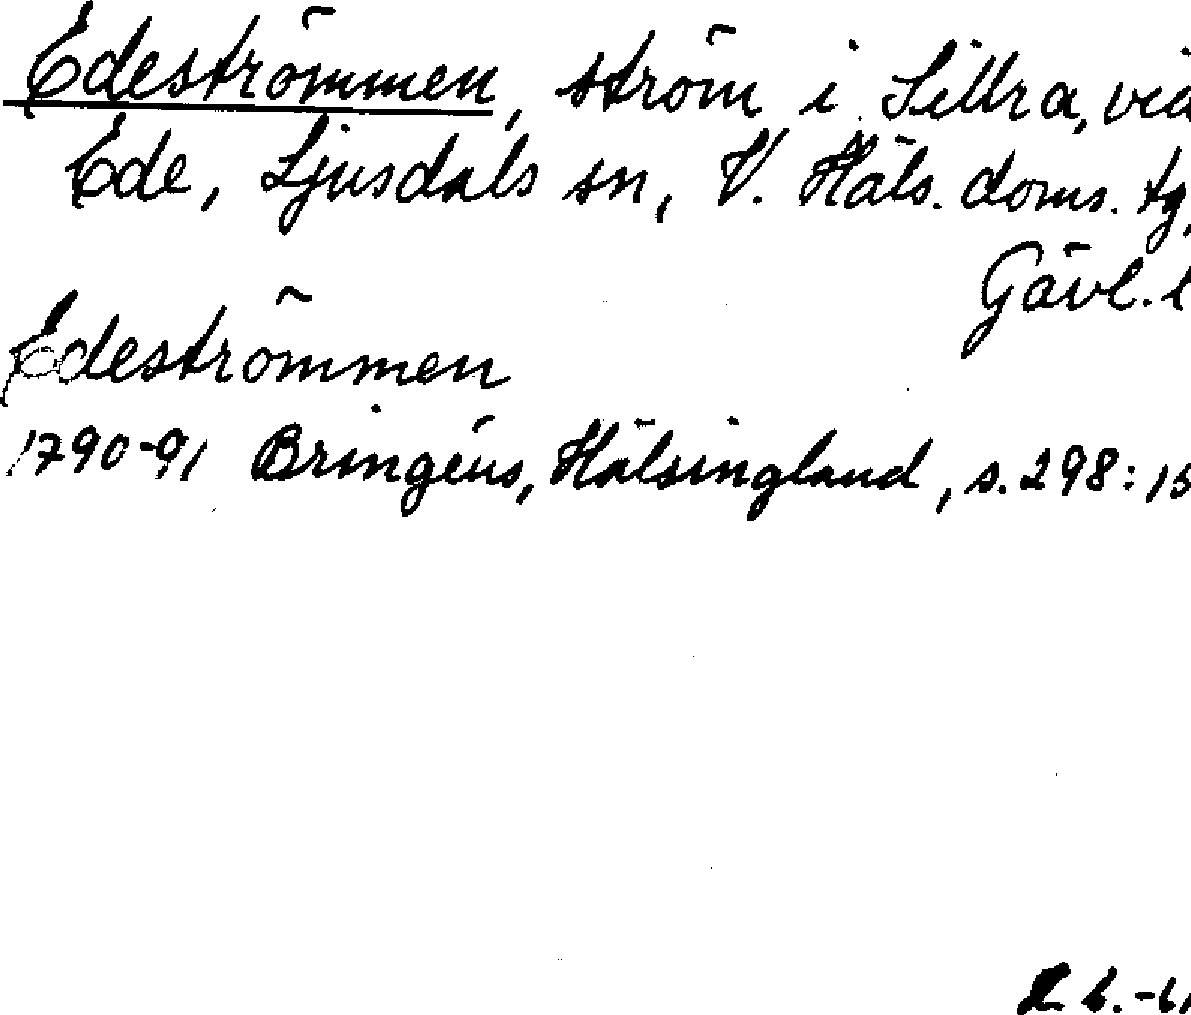 Edeströmmen, ström i Sillra, vid
Ede, Ljusdals sn, V. Häls. doms. tg,
Gävl. l
Edeströmmen
1790-91 Bringéus, Hälsingland, s. 298: 15